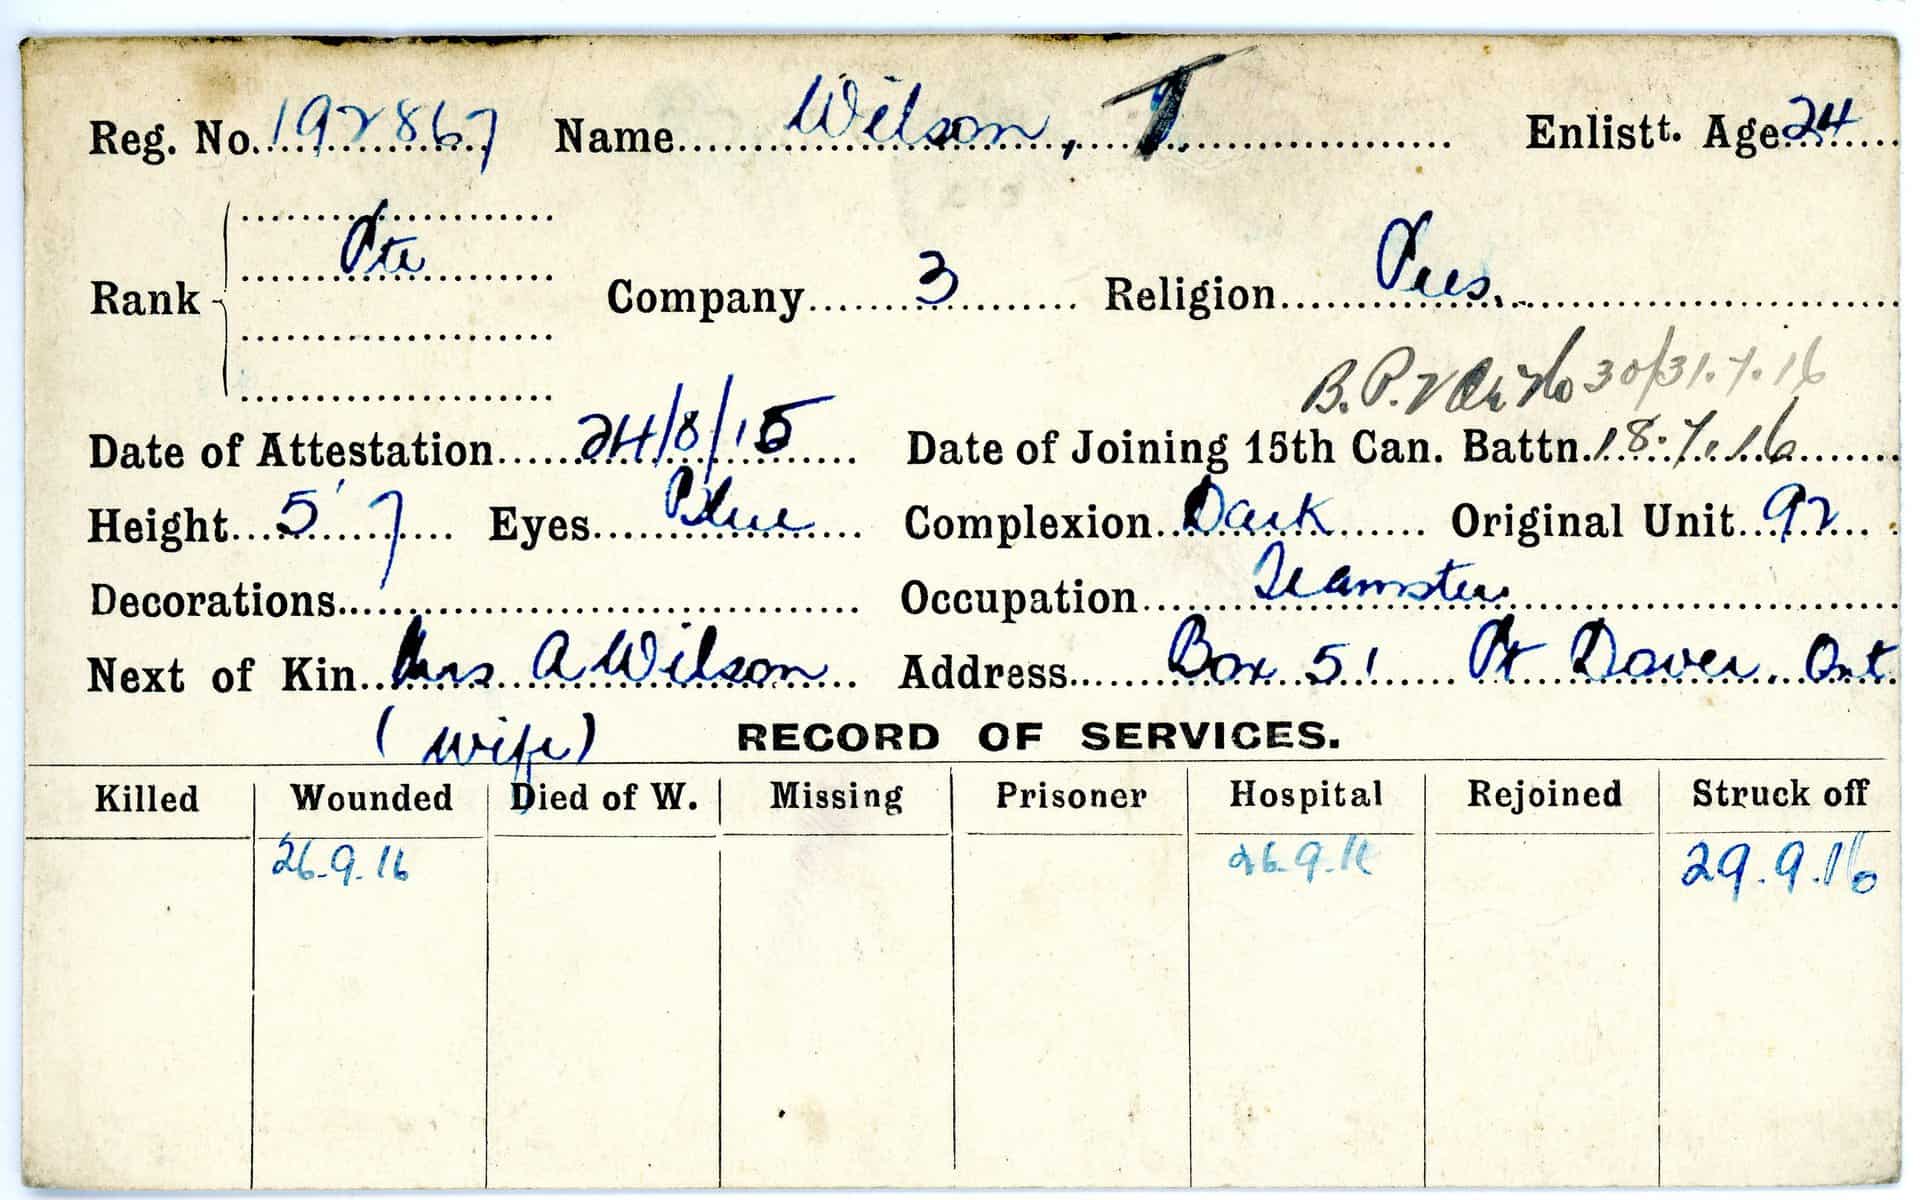 Reg. No. 192867 Name Wilson, T. Enlistt. Age 24
Pte
Rank Company 3 Religion Pres.
B.P. 30/31.7.16
Date of Attestation 24/8/15 Date of Joining 15th Can. Battn. 18.7.16
Height 5' 7 Eyes Blue Complexion Dark Original Unit 92
Decorations Occupation Teamster
Next of Kin Mrs A Wilson Address Box 51 Pt Dover. Ont.
(wife) RECORD OF SERVICES.
Killed Wounded Died of W. Missing Prisoner Hospital Rejoined Struck off
26.9.16 26.9.16 29.9.16